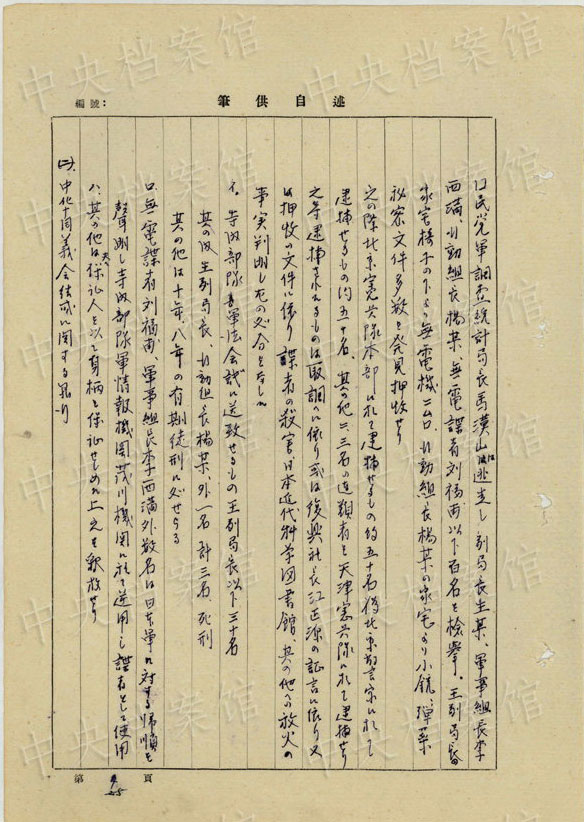 編號:
述自供筆
口民党軍調查統計局長馬漢山は逃走し副局長王某、軍事組長李
西満、行動組長楊某、無電諜者刘福甫以下百名を検挙。王副局長
家宅椅子の下より無電機二台、行動組長楊某の家宅より小銃、弾薬
秘密文件多数を発見押收せり
之の際北京憲兵隊本部に於て逮捕せるもの約五十名偽北京警察に於て
逮捕せるもの約五十名、其の他二、三名の連類者を天津憲兵隊に於て逮捕せり
之等逮捕されたるものは取調べに依り或は復興社長江正源の証言に依り又
は押收の文件に依り諜者の殺害、日本近代科学図書館、其の他への放火の
事実判明し左の処分をなしあり
イ、寺内部隊軍法会議に送致せるもの王副局長以下三十名
其の内王副局長、行動組長楊某外一名計三名、死刑
其の他は十年、八年の有期徒刑に処せらる
ロ、無電諜者刘福甫、軍事組長李西満外数名は日本軍に対する帰順を
聲明し寺内部隊軍情報機関茂川機関に於て逆用し諜者として使用
ハ、其の他は夫々保証人を以て身柄を保証せしめたる上之を釈放せり
(二)、中化十同義会結成に関する罪行
第
頁
中央档案馆